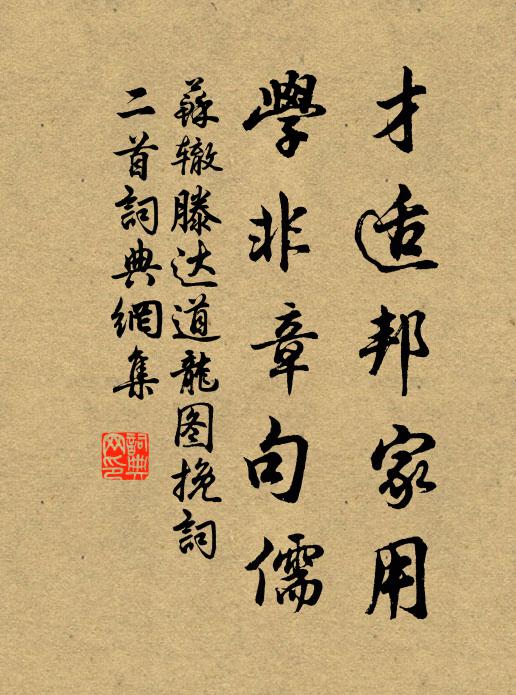 才适邦家用
學非章句儒
蘇辙滕达道龍图挽詞
二首詞典網集
詞典网印